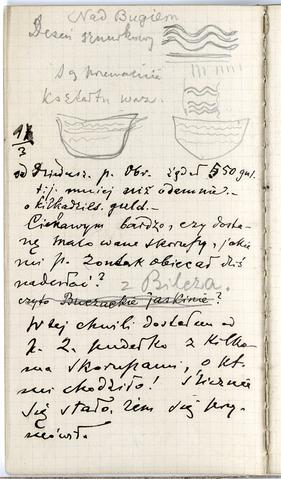 Nad Bugiem
Deseń sznurkowy
Są przeważnie
kształtu waz.
11/3
od Dziedusz. p. Obr. żąda 550 gul.
t.j. mniej niż odemnie –
o kilkadzies. guld. –
Ciekawym bardzo, czy dosta-
nę malowane skorupy, jakie
mi p. obiecał dziś
nadesłać?
z Bilcza.
czyto Buczackie jaskinie?
W tej chwili dostałem od
p. Z. pudełko z kilko-
ma skorupami, o kt.
mi chodziło! Ślicznie
się stało, żem się przy-
mówił.